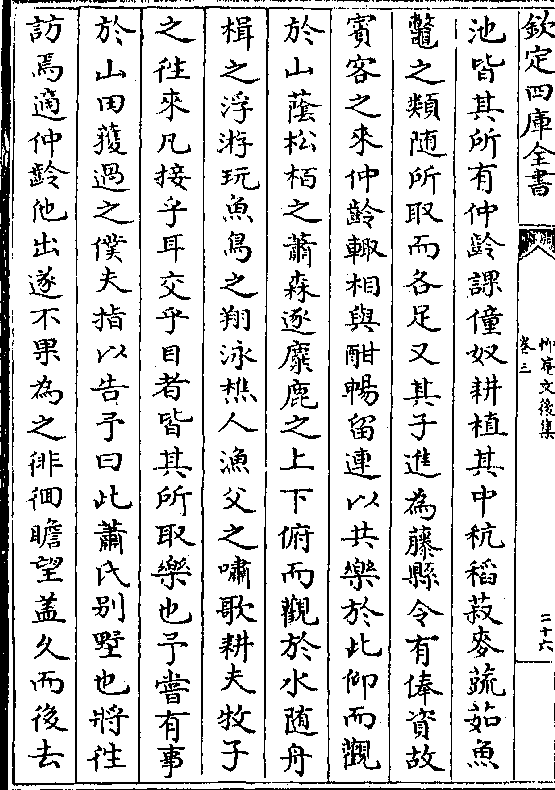 欽定四庫全書
抑菴文後集
卷三
二十六
池皆其所有仲齡課僮奴耕植其中秔稻菽麥蔬茹魚
鼈之類随所取而各足又其子進為藤縣令有俸資故
賓客之來仲齡輙相與酣暢留連以共樂於此仰而觀
於山蔭松栢之蕭森逐麋鹿之上下俯而觀於水随舟
楫之浮游玩魚鳥之翔泳樵人漁父之嘯歌耕夫牧子
之徃來凡接乎耳交乎目者皆其所取樂也予嘗有事
於山田蘰過之僕夫指以告予曰此蕭氏别墅也將徃
訪焉適仲齡他出遂不果為之徘徊瞻望葢久而後去